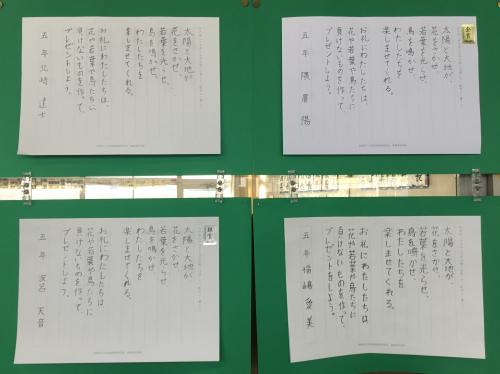 太陽と大地が
花をさかせ、
若葉を光らせ、
鳥を鳴かせ、
わたしたちを
楽しませてくれる。
お礼にわたしたちは、
花や若葉や鳥たちに
負けないものを作って、
プレゼントしよう。
五年
金賞
太陽と大地が
花をさかせ、
若葉を光らせ、
鳥を鳴かせ、
わたしたちを
楽しませてくれる。
お礼にわたしたちは、
花や若葉や鳥たちに
負けないものを作って、
プレゼントしよう。
五年
銀賞
太陽と大地が
花をさかせ
若葉を光らせ
鳥を鳴かせ
わたしたちを
楽しませてくれる。
お礼にわたしたちは
花や若葉や鳥たちに
負けないものを作って、
プレゼントしよう。
五年 天音
太陽と大地が、
花をさかせ、
若葉を光らせ、
鳥を鳴かせ、
わたしたちを
楽しませてくれる。
お礼にわたしたちは、
花や若葉や鳥たちに
負けないものを作って、
プレゼントをしよう。
五年 愛美